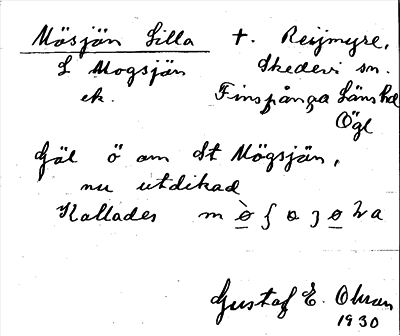 Mösjön Lilla t. Reijmyre,
L Mogsjön Skedevi sn.
ek. Finspånga Länshd
Ögl
Göl ö om St Mögsjön,
nu utdikad
Kallades
Gustaf E. Ohran
1930